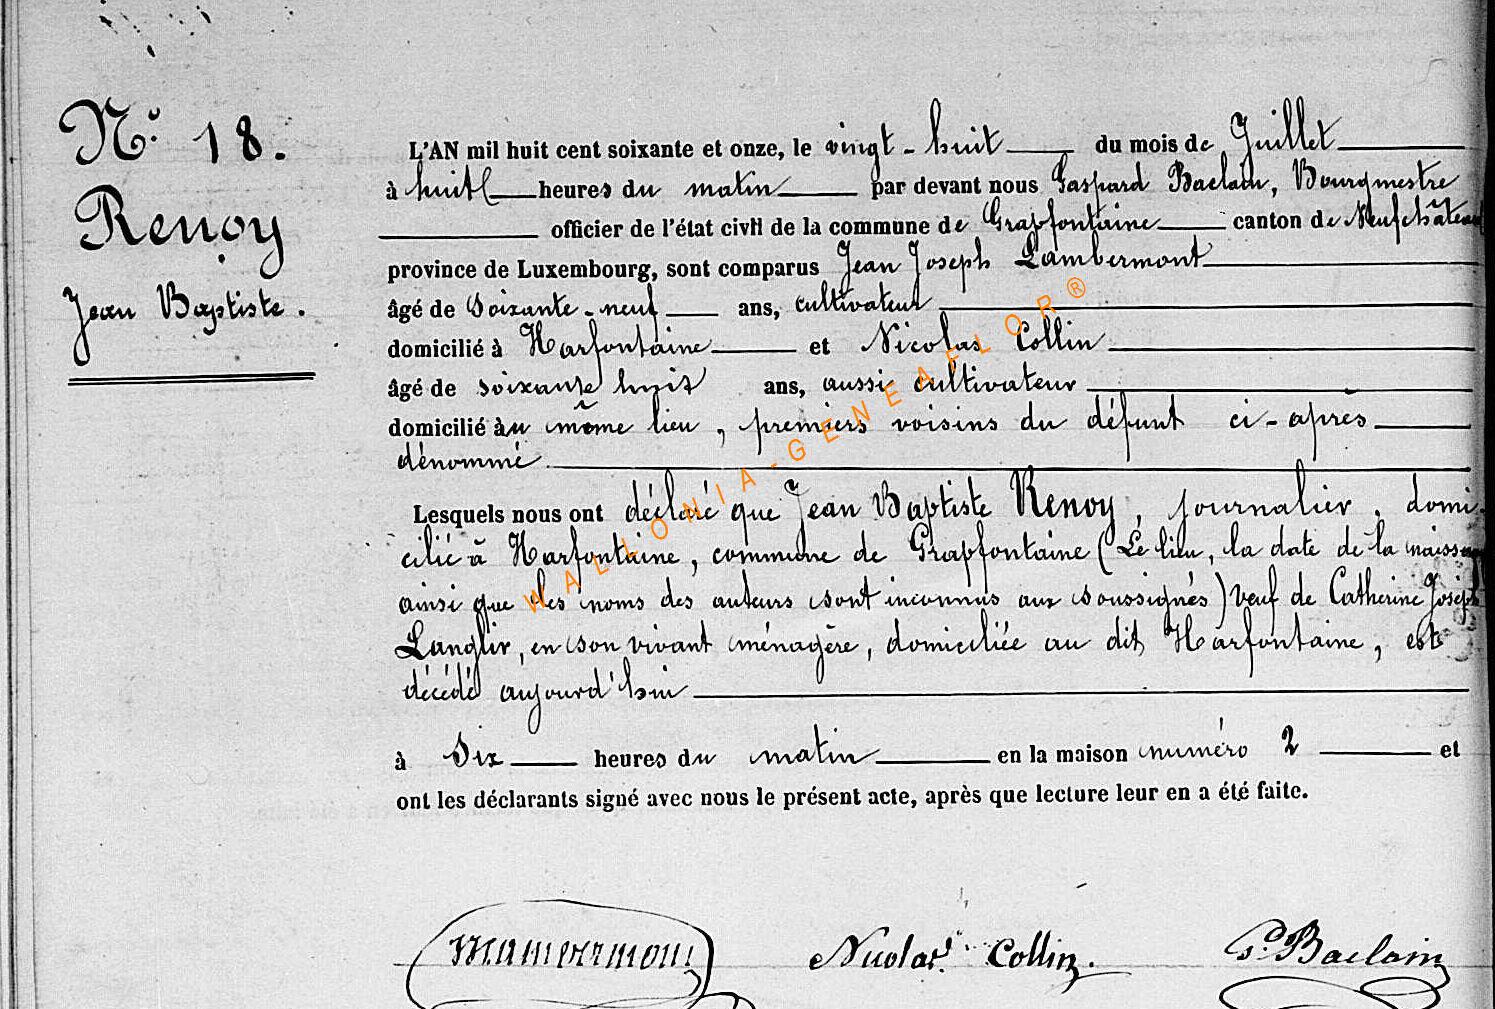 N° 18.
Renoy
Jean Baptiste.
L'AN mil huit cent soixante et onze, le vingt-huit du mois de Juillet
à huit heures du matin par devant nous Gaspard Baclain, Bourgmestre
officier de l'état civil de la commune de Grapfontaine canton de Neufchâteau
province de Luxembourg, sont comparus Jean Joseph Lambermont
âgé de soixante-neuf ans, cultivateur
domicilié à Harfontaine et Nicolas Collin
âgé de soixante huit ans, aussi cultivateur
domicilié àu même lieu, premiers voisins du défunt ci-après
dénommé
Lesquels nous ont déclaré que Jean Baptiste Renoy, journalier, domi-
cilié à Harfontaine, commune de Grapfontaine (Le lieu, la date de la naissance
ainsi que les noms des auteurs sont inconnus aux soussignés) veuf de Catherine Joseph
Langlir, en son vivant ménagère, domiciliée au dit Harfontaine, est
décédé aujourd'hui
à six heures du matin en la maison numéro 2 et
ont les déclarants signé avec nous le présent acte, après que lecture leur en a été faite.
Nicolas Collin.
G. Baclain
WALLONIA-GENEAFLOR®